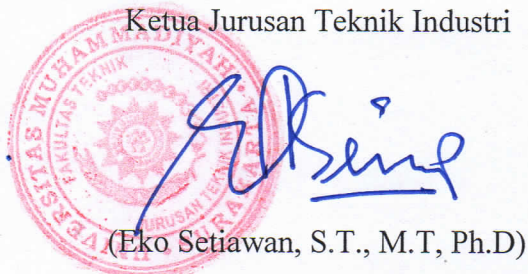 Ketua Jurusan Teknik Industri
UNIVERSITAS MUHAMMADIYAH SURAKARTA
FAKULTAS TEKNIK
JURUSAN TEKNIK
(Eko Setiawan, S.T., M.T, Ph.D)